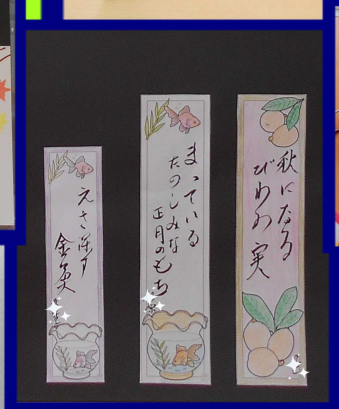 秋になる
びわの実
まっている
たのしみな
正月のもち
えさ
金魚